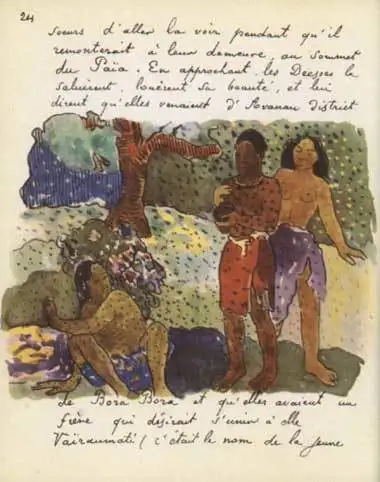 24
soeurs d'aller la voir pendant qu'il
remonterait à leur demeure, au sommet
du Païa. En approchant les Déesses la
saluèrent, louèrent sa beauté, et lui
dirent qu'elles venaient d'Avanau district
de Bora Bora et qu'elles avaient un
frère qui désirait s'unir à elle
Vaïraumati (c'était le nom de la jeune